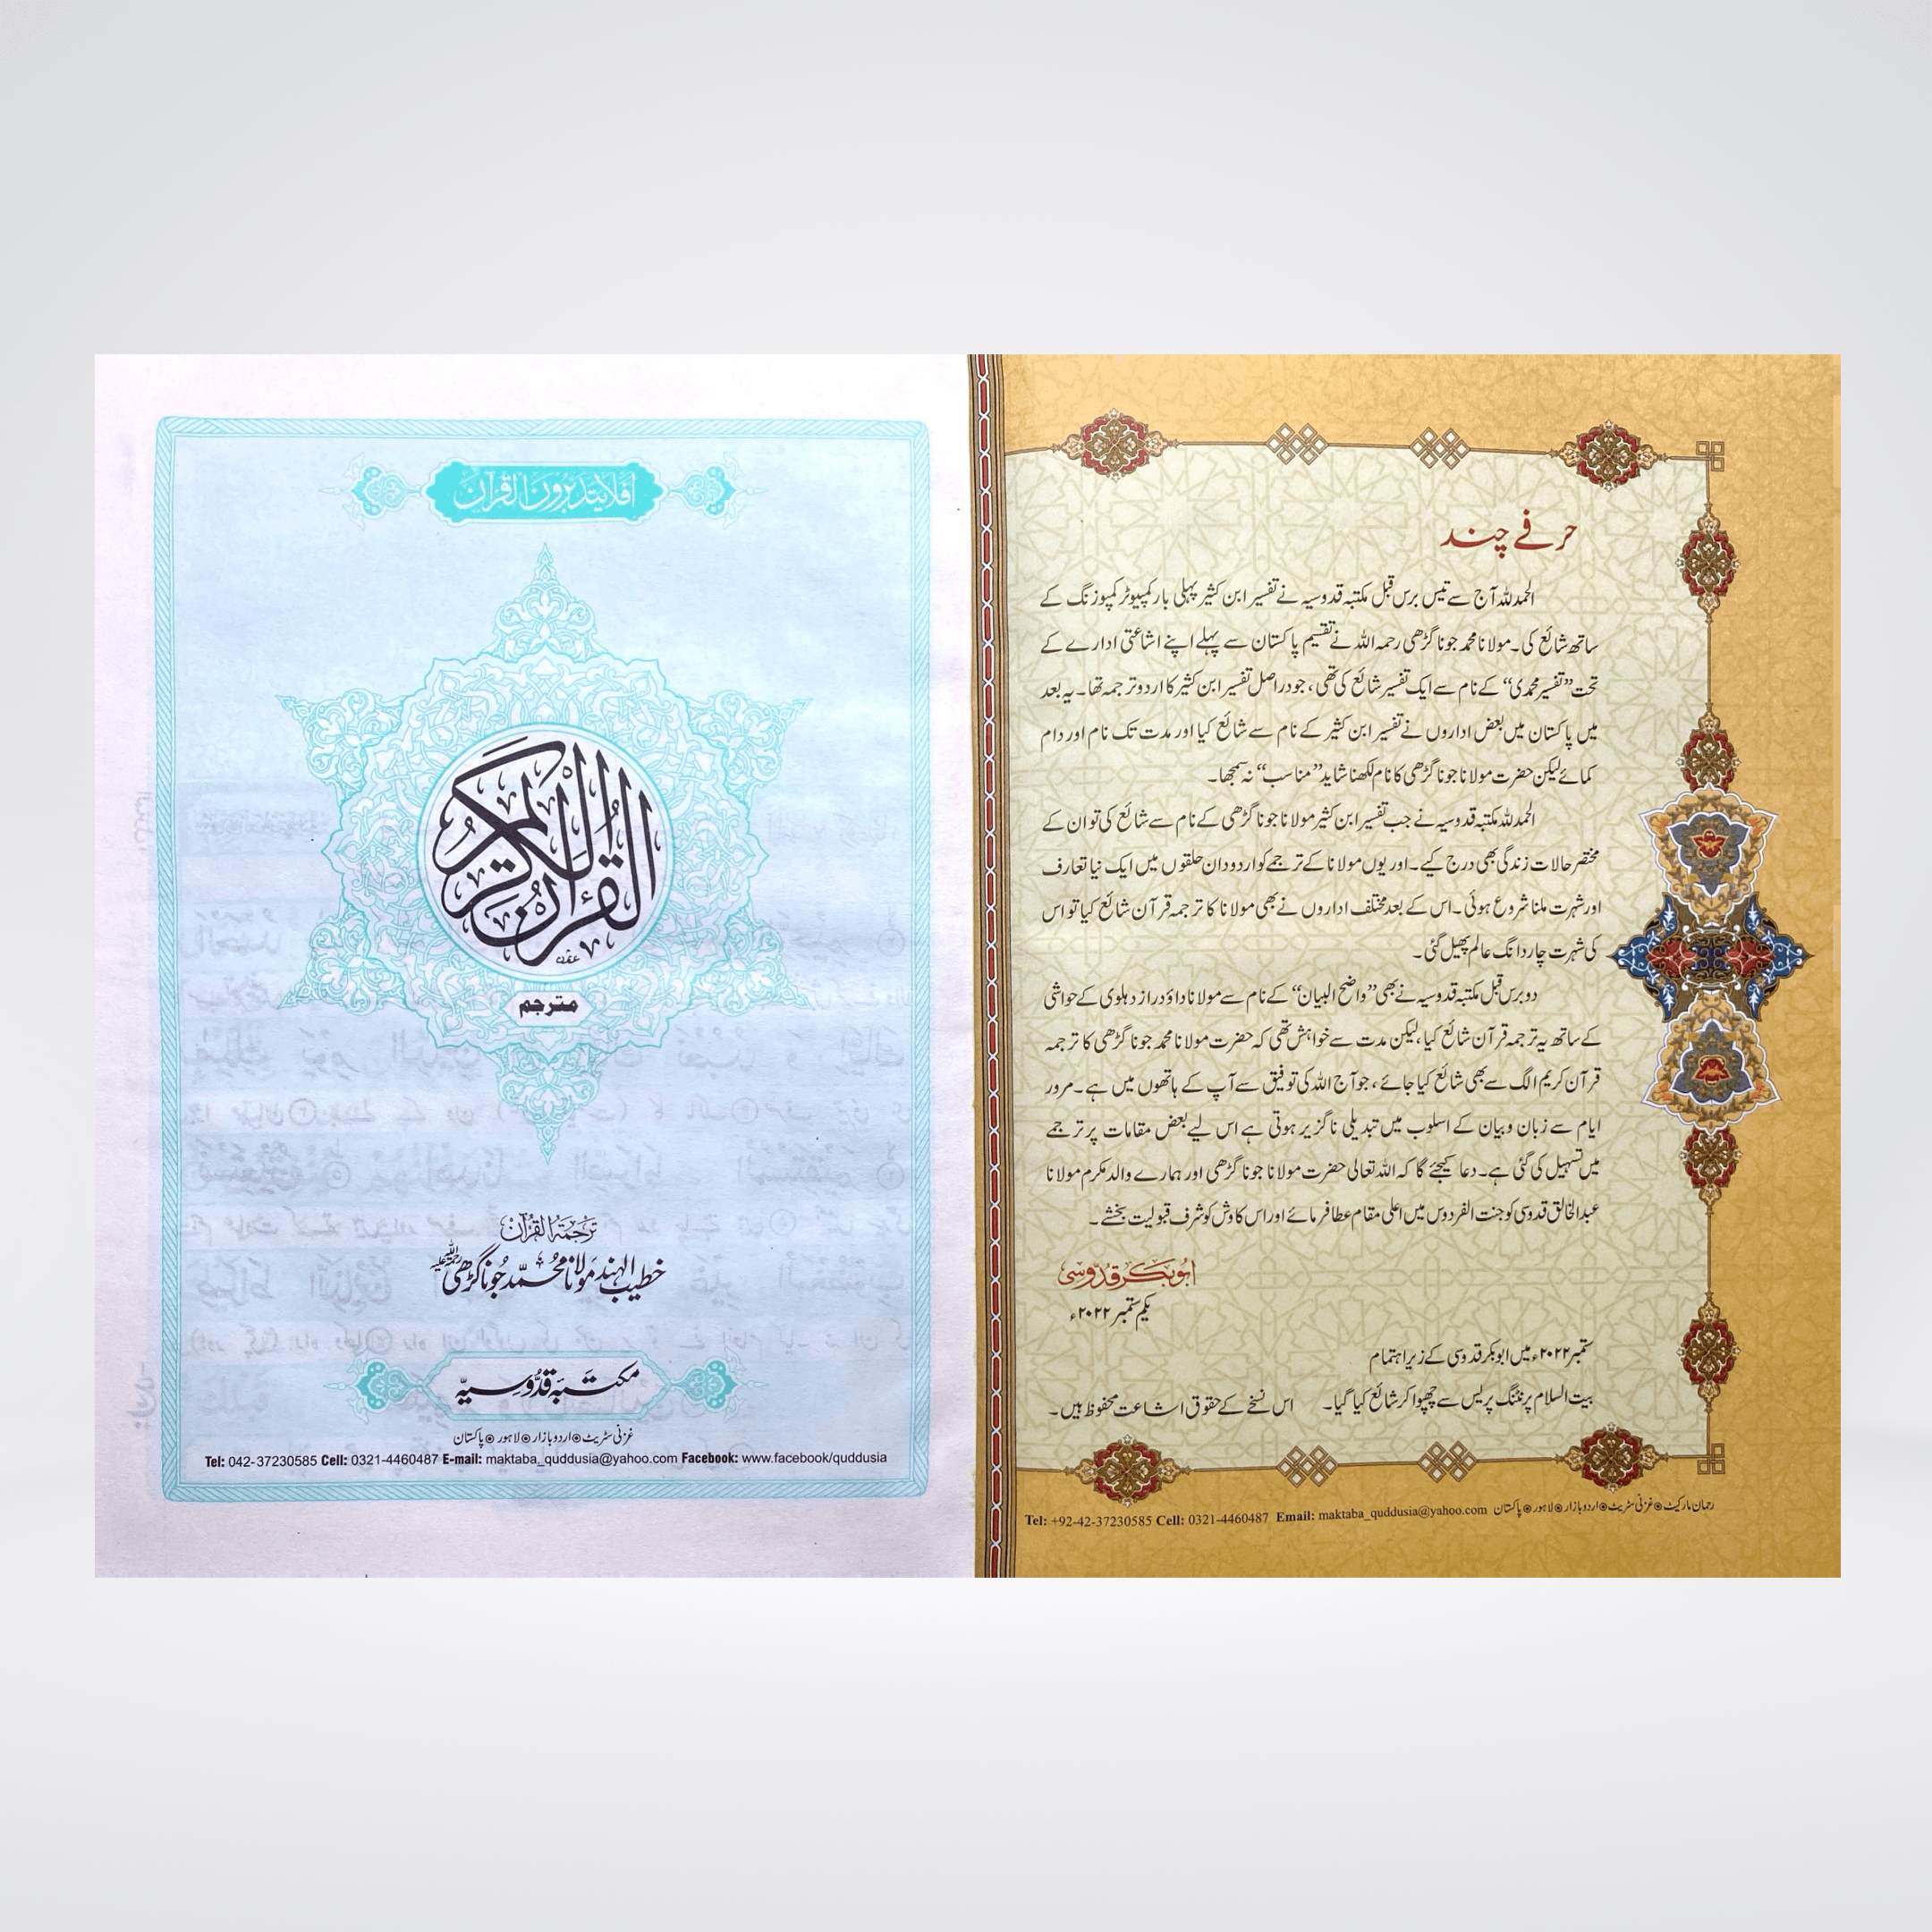 حرفے چند
الحمدللہ آج سے تیس برس قبل مکتبہ قدوسیہ نے تفسیر ابن کثیر پہلی بار کمپیوٹر کمپوزنگ کے
ساتھ شائع کی۔ مولانا محمد جونا گڑھی رحمہ اللہ نے تقسیم پاکستان سے پہلے اپنے اشاعتی ادارے کے
تحت ”تفسیر محمدی“ کے نام سے ایک تفسیر شائع کی تھی، جو دراصل تفسیر ابن کثیر کا اردو ترجمہ تھا۔ یہ بعد
میں پاکستان میں بعض اداروں نے تفسیر ابن کثیر کے نام سے شائع کیا اور مدت تک نام اور دام
کمائے لیکن حضرت مولانا جونا گڑھی کا نام لکھنا شاید ”مناسب“ نہ سمجھا۔
الحمدللہ مکتبہ قدوسیہ نے جب تفسیر ابن کثیر مولانا جونا گڑھی کے نام سے شائع کی تو ان کے
مختصر حالات زندگی بھی درج کیے۔ اور یوں مولانا کے ترجمے کو اردو دان حلقوں میں ایک نیا تعارف
اور شہرت ملنا شروع ہوئی۔ اس کے بعد مختلف اداروں نے بھی مولانا کا ترجمہ قرآن شائع کیا تو اس
کی شہرت چار دانگ عالم پھیل گئی۔
دو برس قبل مکتبہ قدوسیہ نے بھی ”واضح البیان“ کے نام سے مولانا داؤد راز دہلوی کے حواشی
کے ساتھ یہ ترجمہ قرآن شائع کیا، لیکن مدت سے خواہش تھی کہ حضرت مولانا محمد جونا گڑھی کا ترجمہ
قرآن کریم الگ سے بھی شائع کیا جائے، جو آج اللہ کی توفیق سے آپ کے ہاتھوں میں ہے۔ مرور
ایام سے زبان و بیان کے اسلوب میں تبدیلی ناگزیر ہوتی ہے اس لیے بعض مقامات پر ترجمے
میں تسہیل کی گئی ہے۔ دعا کیجئے گا کہ اللہ تعالی حضرت مولانا جونا گڑھی اور ہمارے والد مکرم مولانا
عبدالخالق قدوسی کو جنت الفردوس میں اعلی مقام عطا فرمائے اور اس کاوش کو شرف قبولیت بخشے۔
ابوبکر قدوسی
یکم ستمبر ۲۰۲۲ء
ستمبر ۲۰۲۲ء میں ابوبکر قدوسی کے زیر اہتمام
بیت السلام پرنٹنگ پریس سے چھپوا کر شائع کیا گیا۔ اس نسخے کے حقوق اشاعت محفوظ ہیں۔
رحمان مارکیٹ ⦿ غزنی سٹریٹ ⦿ اردو بازار ⦿ لاہور ⦿ پاکستان
Tel: +92-42-37230585 Cell: 0321-4460487 Email: maktaba_quddusia@yahoo.com
افلا یتدبرون القرآن
القرآن الکریم
مترجم
ترجمۃ القرآن
خطیب الہند مولانا محمد جونا گڑھی رحمۃ اللہ علیہ
مکتبہ قدوسیہ
غزنی سٹریٹ ⦿ اردو بازار ⦿ لاہور ⦿ پاکستان
Tel: 042-37230585 Cell: 0321-4460487 E-mail: maktaba_quddusia@yahoo.com Facebook: www.facebook/quddusia